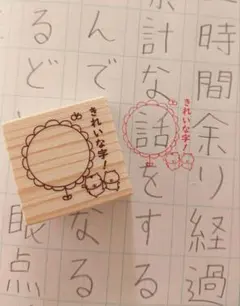 時間余り経過
余計な話をする
んでなる
るど眼点
きれいな字!
きれいな字!